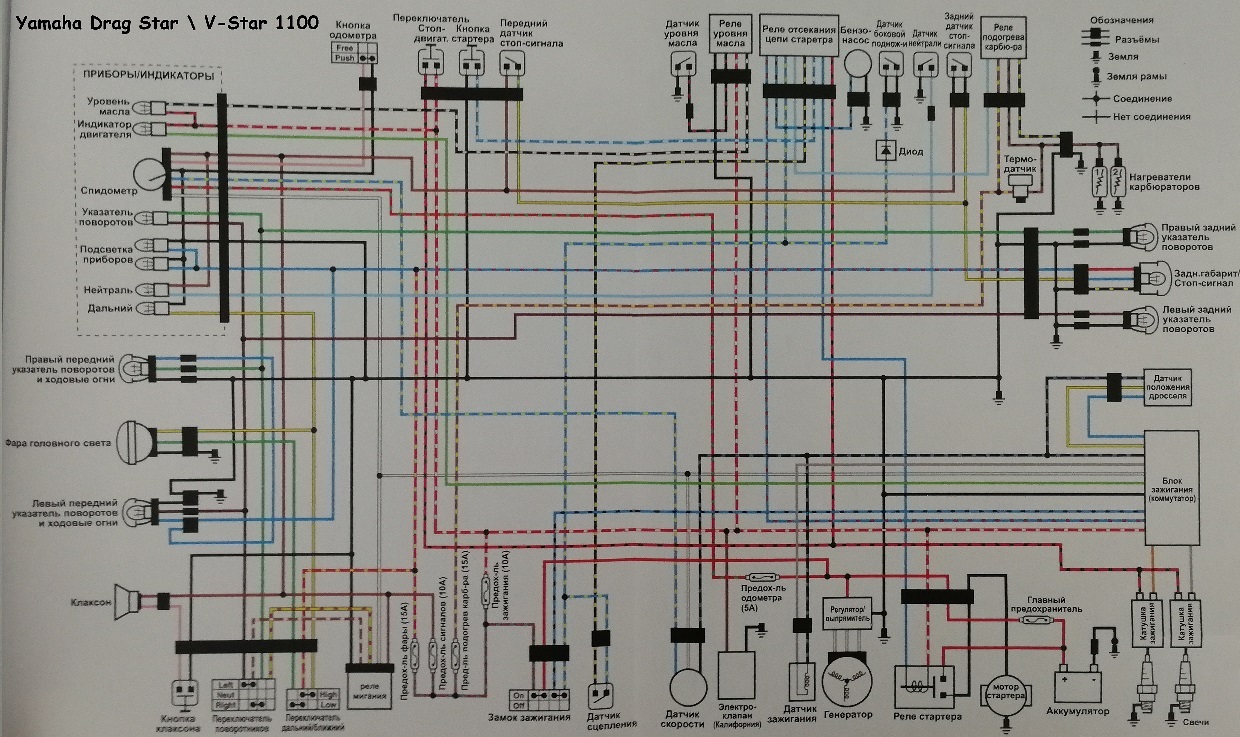 Yamaha Drag Star \ V-Star 1100
Кнопка
одометра
Free
Push
Переключатель
Стоп-
двигат.
Кнопка
стартера
Передний
датчик
стоп-сигнала
Датчик
уровня
масла
Реле
уровня
масла
Реле отсекания
цепи старетра
Бензо-
насос
Датчик
боковой
поднож-и
Датчик
нейтрали
Задний
датчик
стоп-
сигнала
Реле
подогрева
карбю-ра
Обозначения
Разъёмы
Земля
Земля рамы
Соединение
Нет соединения
ПРИБОРЫ/ИНДИКАТОРЫ
Уровень
масла
Индикатор
двигателя
Спидометр
Указатель
поворотов
Подсветка
приборов
Нейтраль
Дальний
Диод
Термо-
датчик
1/
2/
Нагреватели
карбюраторов
Правый задний
указатель
поворотов
Задн.габарит/
Стоп-сигнал
Левый задний
указатель
поворотов
Правый передний
указатель поворотов
и ходовые огни
Фара головного света
Левый передний
указатель поворотов
и ходовые огни
Клаксон
Датчик
положения
дросселя
Блок
зажигания
(коммутатор)
Предох-ль фары (15А)
Предох-ль сигналов (10А)
Пред-ль подогрев карб-ра (15А)
Предох-ль
зажигания (10А)
Предох-ль
одометра
(5А)
Регулятор/
выпрямитель
Главный
предохранитель
Катушка
зажигания
Катушка
зажигания
Кнопка
клаксона
Left
Neut
Right
Переключатель
поворотников
High
Low
Переключатель
дальний/ближний
реле
мигания
On
Off
Замок зажигания
Датчик
сцепления
Датчик
скорости
Электро-
клапан
(Калифорния)
Датчик
зажигания
Генератор
Реле стартера
мотор
стартера
+
-
Аккумулятор
Свечи